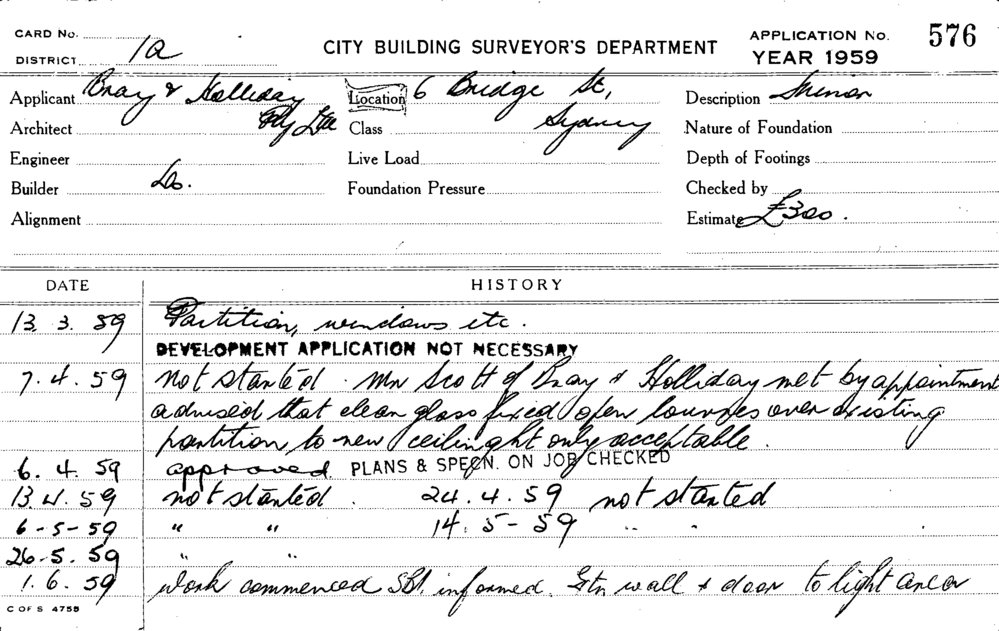 CARD No.
DISTRICT 1a
CITY BUILDING SURVEYOR'S DEPARTMENT
APPLICATION No. 576
YEAR 1959
Applicant Bray & Holliday
Pty Ltd
Location 6 Bridge St,
Sydney
Description Minor
Architect
Class
Nature of Foundation
Engineer
Live Load
Depth of Footings
Builder Do.
Foundation Pressure
Checked by
Alignment
Estimate £300.
DATE HISTORY
13. 3. 59 Partition, windows etc.
DEVELOPMENT APPLICATION NOT NECESSARY
7. 4. 59 not started. Mr Scott of Bray & Holliday met by appointment
advised that clean glass fixed open louvres over existing
partition to new ceiling ht only acceptable.
6. 4. 59 approved. PLANS & SPECN. ON JOB CHECKED
13. 4. 59 not started. 24. 4. 59 not started
6-5-59 " " 14. 5-59 " "
26. 5. 59 " "
1. 6. 59 work commenced informed. wall & door to light area
C OF S 4755